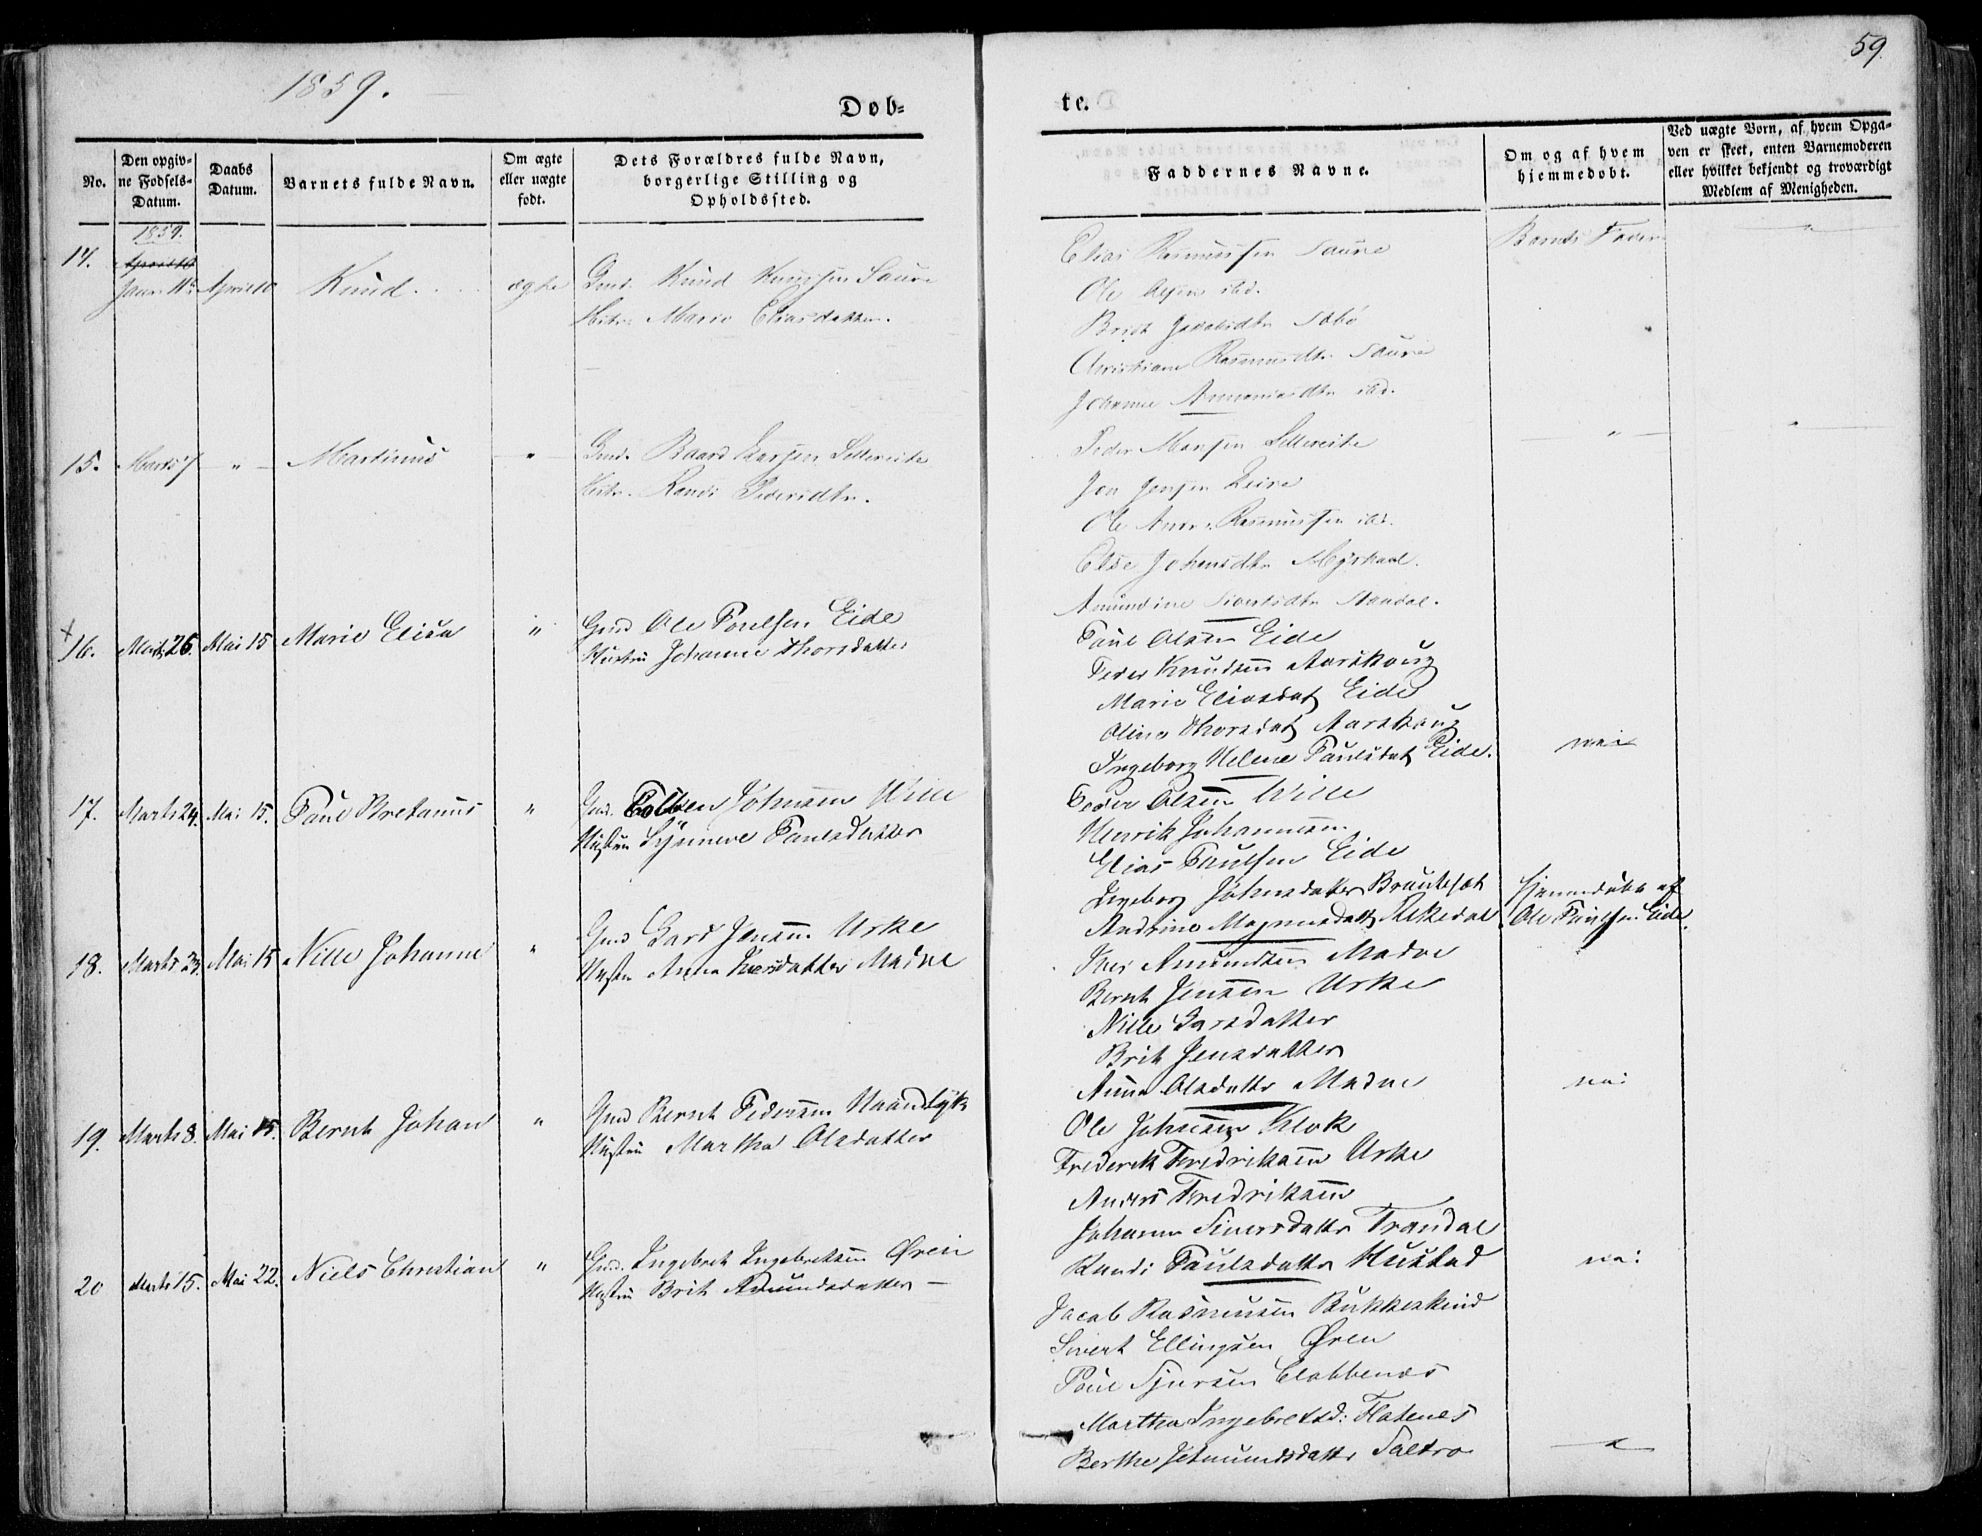 59.
1859.
Døb-
te.
No.
Den opgiv-
ne Fødsels-
Datum.
Daabs
Datum.
Barnets fulde Navn.
Om ægte
eller uægte
født.
Dets Forældres fulde Navn,
borgerlige Stilling og
Opholdssted.
Faddernes Navne.
Om og af hvem
hjemmedøbt.
Ved uægte Børn, af hvem Opga-
ven er skeet, enten Barnemoderen
eller hvilket bekjendt og troværdigt
Medlem af Menigheden.
1859.
14.
Janr 11 April 10 Knud. ægte Gmd. Knud Saure
Hstr. Marie Eliasdatter.
Elias Rasmussen Saure
Ole Olsen ibd.
Brit Jakobsdtr Sæbø
Christiane Rasmusdtr. Saure
Johanne ibd.
Barnets Fader
15. Marts 7 " Martinus " Gmd. Baard Larsen Sellereite
Hstr. Randi Pedersdtr.
Peder Monsen Sellereite
Jon Jensen Leira
Ole Rasmussen ibd.
Else Johansdtr
Amundine Sivertsdtr Standal.
16. Marts 26. Mai 15 Marie Elisa " Gmd Ole Poulsen Eide
Hustru Johanne Thorsdatter
Paul Olsen Eide
Peder Knudsen Aarskoug
Marie Eliasdat Eide
Oline Thorsdat Aarskoug
Ingeborg Helene Paulsdat Eide.
nei
17. Marts 24. Mai 15. Paul Bretanus " Gmd. Johnsen Wiie
Hustru Synneve Paulsdatter
Peder Olsen Wiie
Henrik Johannesen
Elias Paulsen Eide
Ingeborg Johnsdatter Brautesæt
Andrine Magnusdatt Rekkedal
Hjemmedøbt af
Ole Paulsen Eide.
18. Marts 23. Mai 15 Nille Johanne " Gmd Lars Jensen Urke
Hustru Anna Iversdatter Madve
Iver Amundsen Madve
Bernt Jensen Urke
Nille Larsdatter
Brit Jensdatter
Anne Olsdattr Madve
nei
19. Marts 8. Mai 15. Bernt Johan " Gmd Bernt Pedersen Haandlyk
Hustru Martha Olsdatter
Ole Johnsen Klok
Frederik Fredriksen Urke
Anders Fredriksen
Johanne Siversdattr Trandal
Randi Paulsdattr Hustad
nei
20 Marts 15. Mai 22. Niels Christian " Gmd. Ingebret Ingebretsen Øren
Hustru Brit Amundsdatter —
Jacob Rasmusen Bukkeskind
Sivert Ellingsen Øren
Poul Sjursen Clobbenæs
Martha Ingebretsd: Flatenes
Berthe Jetmundsdattr Saltre